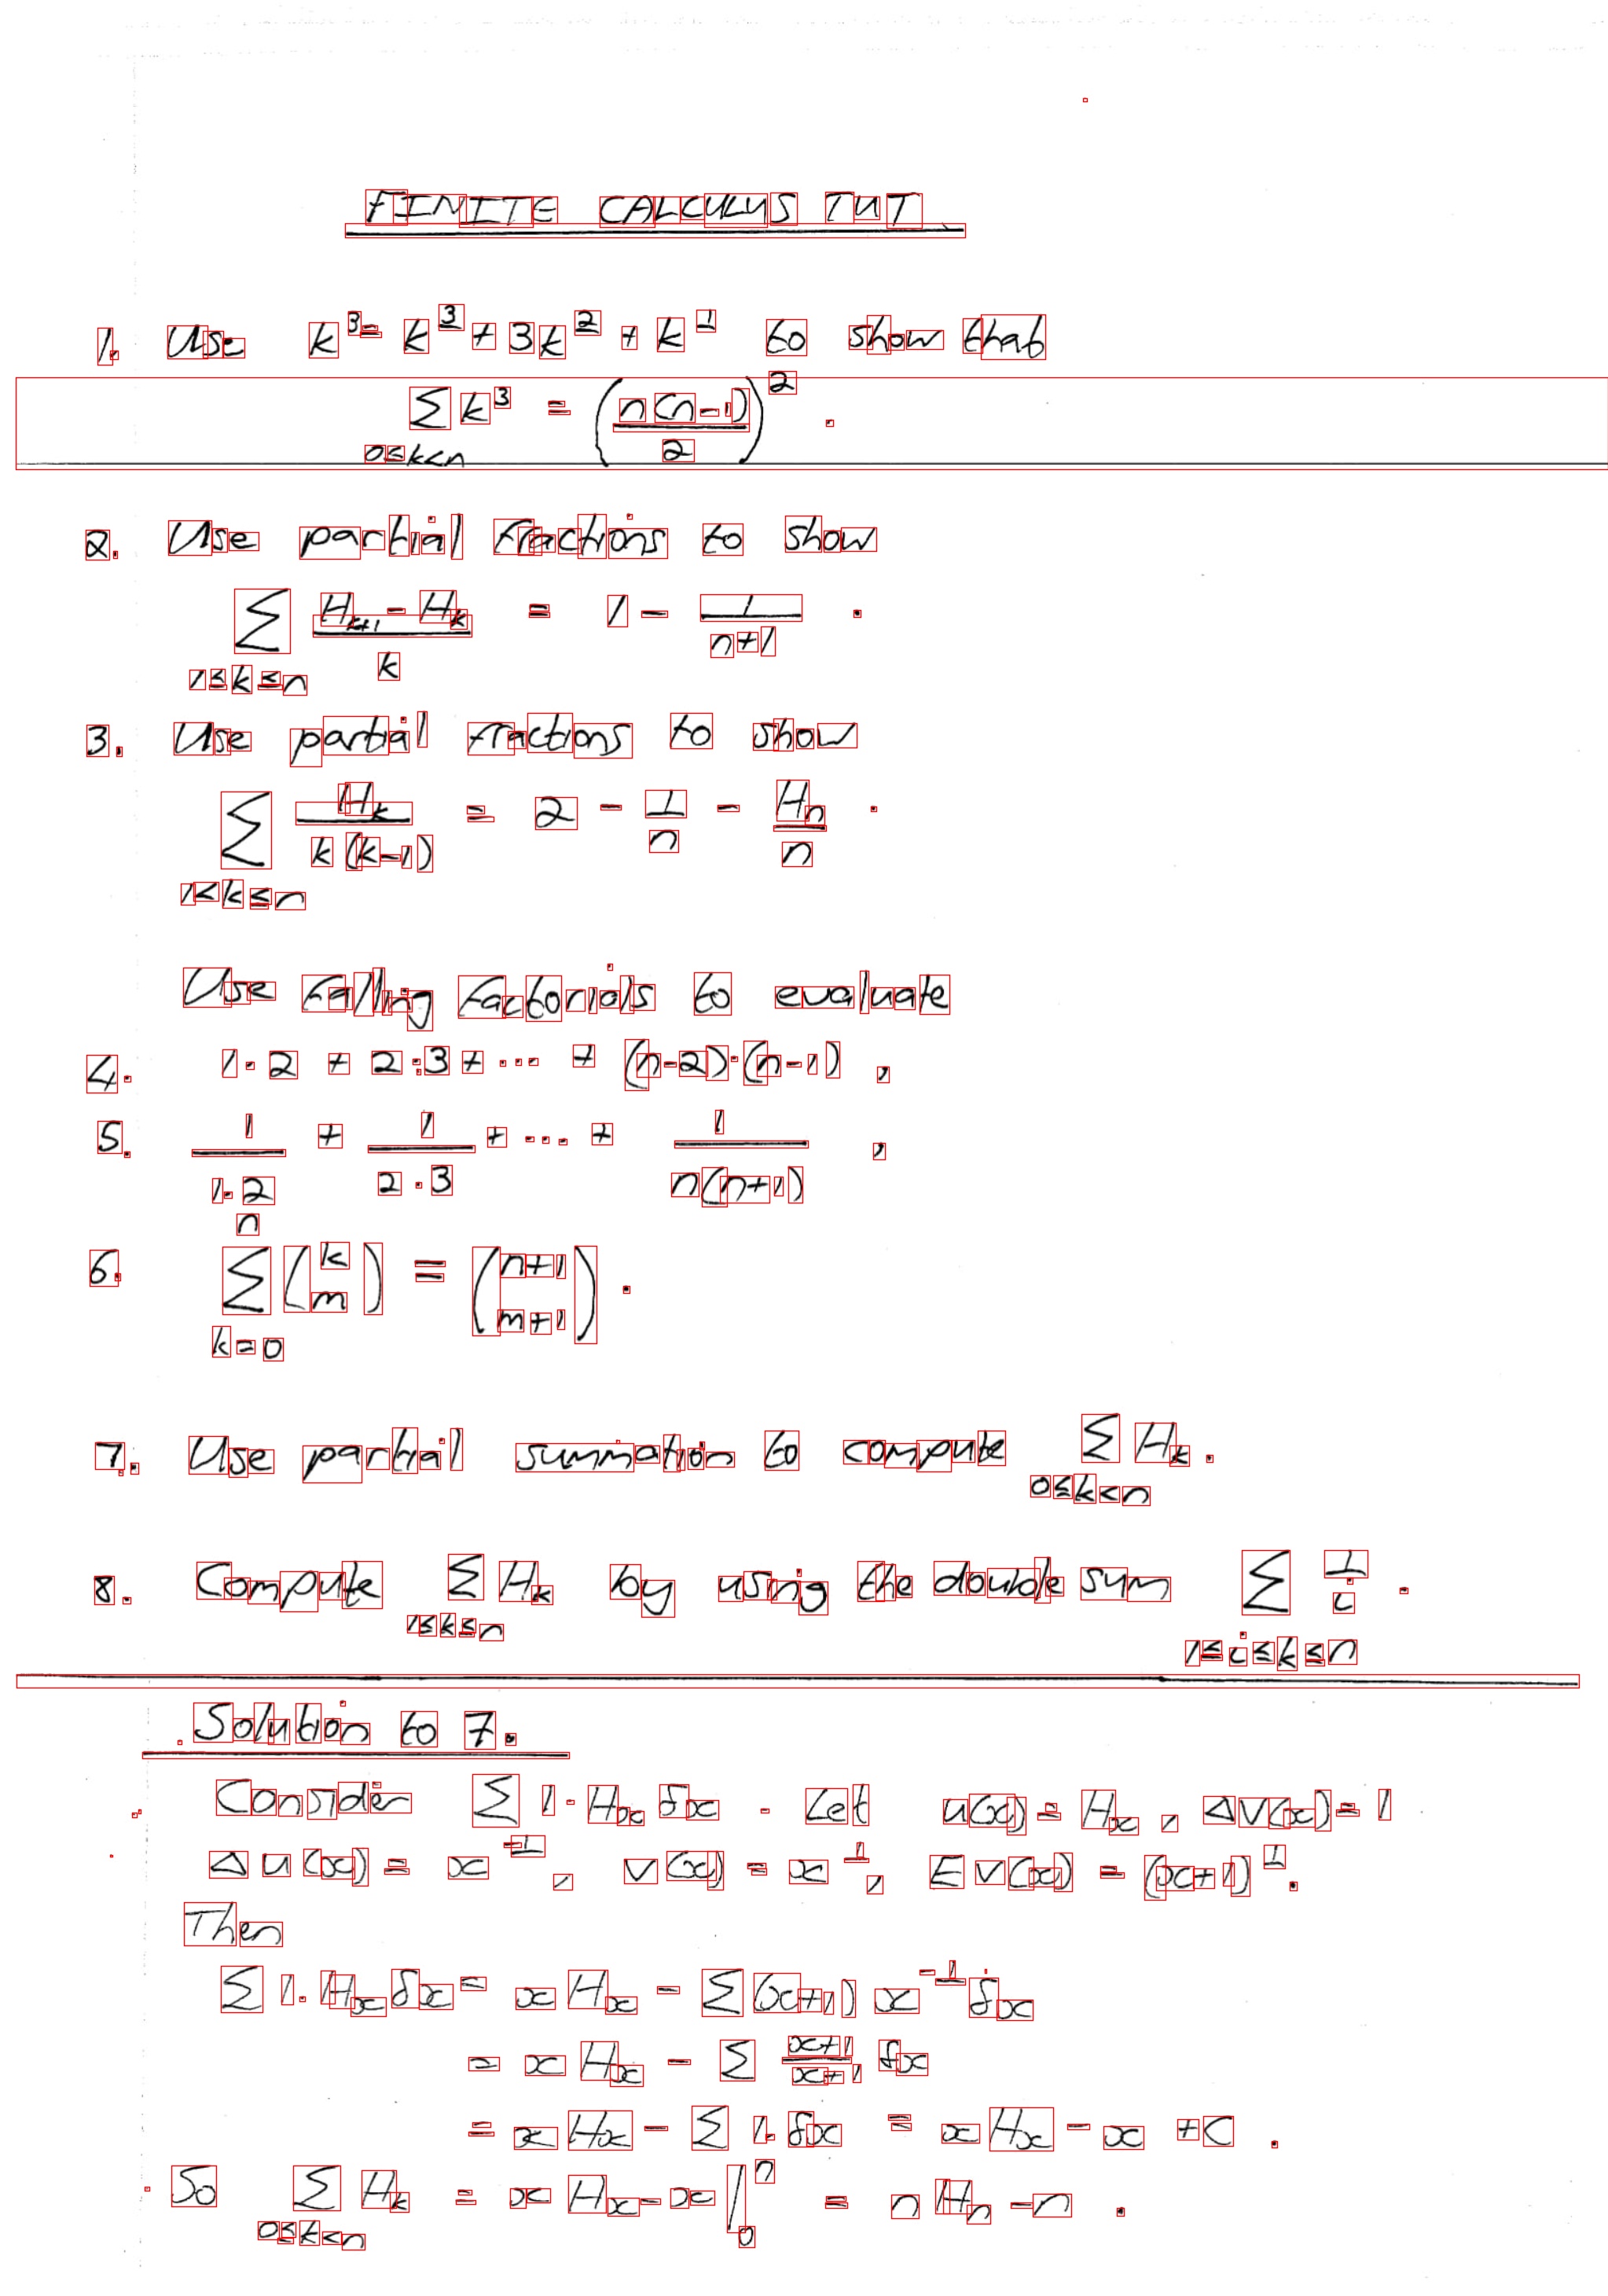 FINITE CALCULUS TUT
1. Use k³ = k^{\underline{3}} + 3k^{\underline{2}} + k^{\underline{1}} to show that
∑_{0≤k<n} k³ = (n(n-1)/2)² .
2. Use partial fractions to show
∑_{1≤k≤n} (H_{k+1} - H_k)/k = 1 - 1/(n+1) .
3. Use partial fractions to show
∑_{1<k≤n} H_k/(k(k-1)) = 2 - 1/n - H_n/n .
Use Falling Factorials to evaluate
4. 1·2 + 2·3 + ··· + (n-2)·(n-1) ,
5. 1/(1·2) + 1/(2·3) + ··· + 1/(n(n+1)) ,
6. ∑_{k=0}^{n} (k m) = (n+1 m+1) .
7. Use partial summation to compute ∑_{0≤k<n} H_k .
8. Compute ∑_{1≤k≤n} H_k by using the double sum ∑_{1≤i≤k≤n} 1/i .
Solution to 7.
Consider ∑ 1·H_x δx . Let u(x) = H_x , Δv(x) = 1
Δu(x) = x^{\underline{-1}} , v(x) = x^{\underline{1}} , Ev(x) = (x+1)^{\underline{1}} .
Then
∑ 1.H_x δx = x H_x - ∑(x+1) x^{\underline{-1}} δx
= x H_x - ∑ (x+1)/(x+1) δx
= x H_x - ∑ 1.δx = x H_x - x + C .
So ∑_{0≤k<n} H_k = x H_x - x |_0^n = n H_n - n .